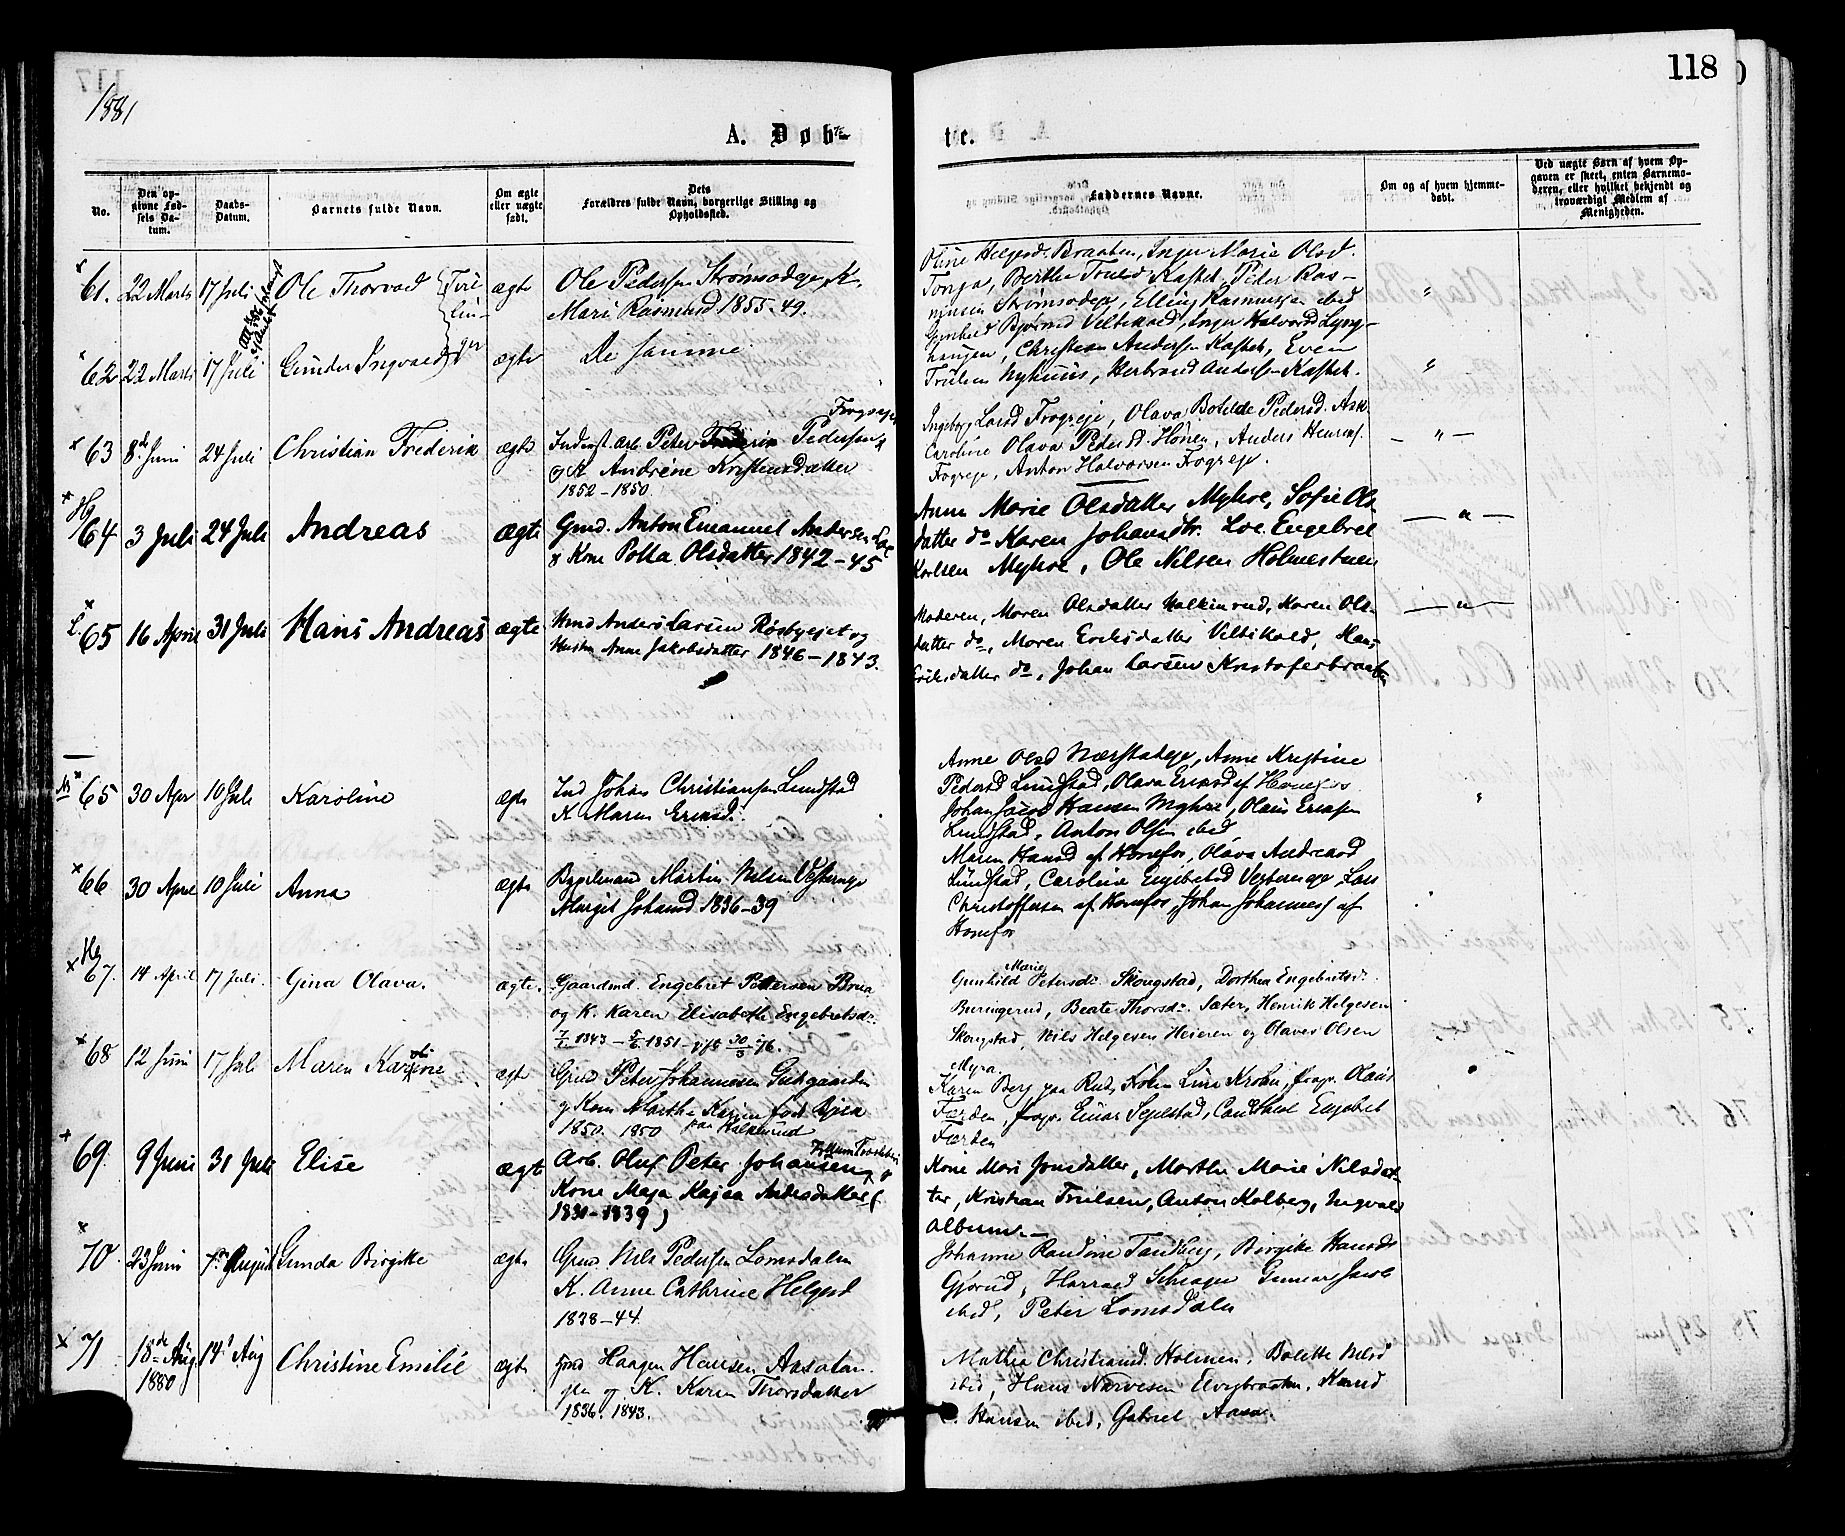 118
1881
A. Døb-
te.
No.
Den opgivne Fødsels Datum.
Daabs-Datum.
Barnets fulde Navn.
Om ægte eller uægte født.
Dets Forældres fulde Navn, borgerlige Stilling og Opholdssted.
Faddernes Navne.
Om og af hvem hjemmedøbt.
Ved uægte Børn af hvem Opgaven er skeet, enten Barnemoderen, eller hvilket bekjendt og troværdigt Medlem af Menigheden.
61. 22 Marts 17 Juli Ole Thorvad ægte Ole Pedersen Strømsodeje, K.
Mari Rasmusd 1855-49.
Oline Helgesd. Braaten, Inger Marie Olsd.
Tonga, Berthe Trulsd Kastet, Peder Ras-
musen Strømsodeje, Elling Rasmussen ibid
62 22 Marts 17 Juli Gunder Ingvad ægte De samme
Gunhild Bjørnsd Veltikold, Inger Halvorsd Lyng-
haugen, Christian Andersen Kastet, Even
Trulsen Nyhuus, Herbrand Andersen Kastet.
63 8de Juni 24 Juli Christian Frederik ægte Inderst. Arb. Peter Pedersen
Frogseje
og K. Andrine Kristensdatter
1852-1850
Ingeborg Larsd Frogseje, Olava Botilde Pedersd. Ask
Caroline Olava Pedersd. Hønen, Anders Henrens.
Frogseje, Anton Halvorsen Frogseje.
Hg
64 3 Juli 24 Juli Andreas ægte Gmd. Anton Emanuel Andersen Loe
& Kone Polla Olsdatter 1842-45
Anne Marie Olsdatter Myhre, Sofie Ols-
datter do Karen Johansdtr. Loe Engebret
Karlsen Myhre, Ole Nilsen Holmestuen
L. 65 16 April 31 Juli Hans Andreas ægte Hmd Anders Larsen Røsbyejet og
Hustru Anne Jakobsdatter 1846-1843.
Moderen, Maren Olsdatter Halkinrud, Karen Ols-
datter do, Maren Eriksdatter Veltikold, Hans
Eriksdatter do, Johan Larsen Kristoferbraaten
65 30 Apr 10 Juli Karoline ægte Ind Johan Christiansen Lundstad
K Maren Eriksd.
Anne Olsd Nærstadeje, Anne Kristine
Pedersd Lundstad, Olava Eriksd af Honefos
Johan Jacob Hansen Myhre, Olaus Eriksen
Lundstad, Anton Olsen ibid
66 30 April 10 Juli Anna ægte Bygselmand Martin Nilsen Vesterneje
Margit Johansd 1836-39
Maren Hansd af Honefos, Olava Andreasd
Lundstad, Caroline Engebretsd Vesterneje, Lars
Christoffersen af Honefos, Johan Johannesf af
Honefos
Hg
67. 14 April 17 Juli. Gina Olava. ægte. Gaardmd. Engebret Pettersen Bona
og K. Karen Elisabeth Engebretsdr.
7/7 1843 - 5/6 1851 - gift 30/3 76.
Gunhild Marie Petersdr. Skougstad, Dorthea Engebretsdr.
Buringerud, Beate Thorsdr. Sæter, Henrik Helgesen
Skougstad, Nils Helgesen Heieren og Olaves Olsen
Myra.
68 12 Juni 17 Juli Maren Karoline ægte Gmd Peter Johannesen Gudsgaarden
& Kone Marthe Karine født Bjøra
1850. 1850 paa Halkinrud
Karen Berg paa Rud, Frøken Lina Krohn, Olaus
Færden, Einar Sejelstad, Engebret
Færden
69. 9 Juni 31 Juli Elise ægte Arb. Oluf Peter Johansen
Kone Maja Kajsa Andersdatter (
1831-1839)
Kone Mari Jonsdatter, Marthe Marie Nilsdat-
ter, Kristian Trulsen, Anton Kolberg, Ingvald
Album.
70. 23 Juni 7de August Gunda Birgitte ægte Gmd. Nils Pedersen Lomsdalen
K. Anne Cathrine Helgesd
1838-44.
Johanne Randine Tandberg, Birgitte Hansd
Gjørud, Harald Schrager, Gunnar Jacob
ibid, Peter Lomsdalen
71 18de Aug. 1880 14de Aug Christine Emilie ægte Gmd Haagen Hansen Aasatan-
gen og K. Karen Thorsdatter
1836. 1843.
Mathea Christiansd. Holmen, Bolette Nilsd
ibid, Hans Narvesen Elvebraaten, Knud
Hansen ibid, Gabriel Aasa.